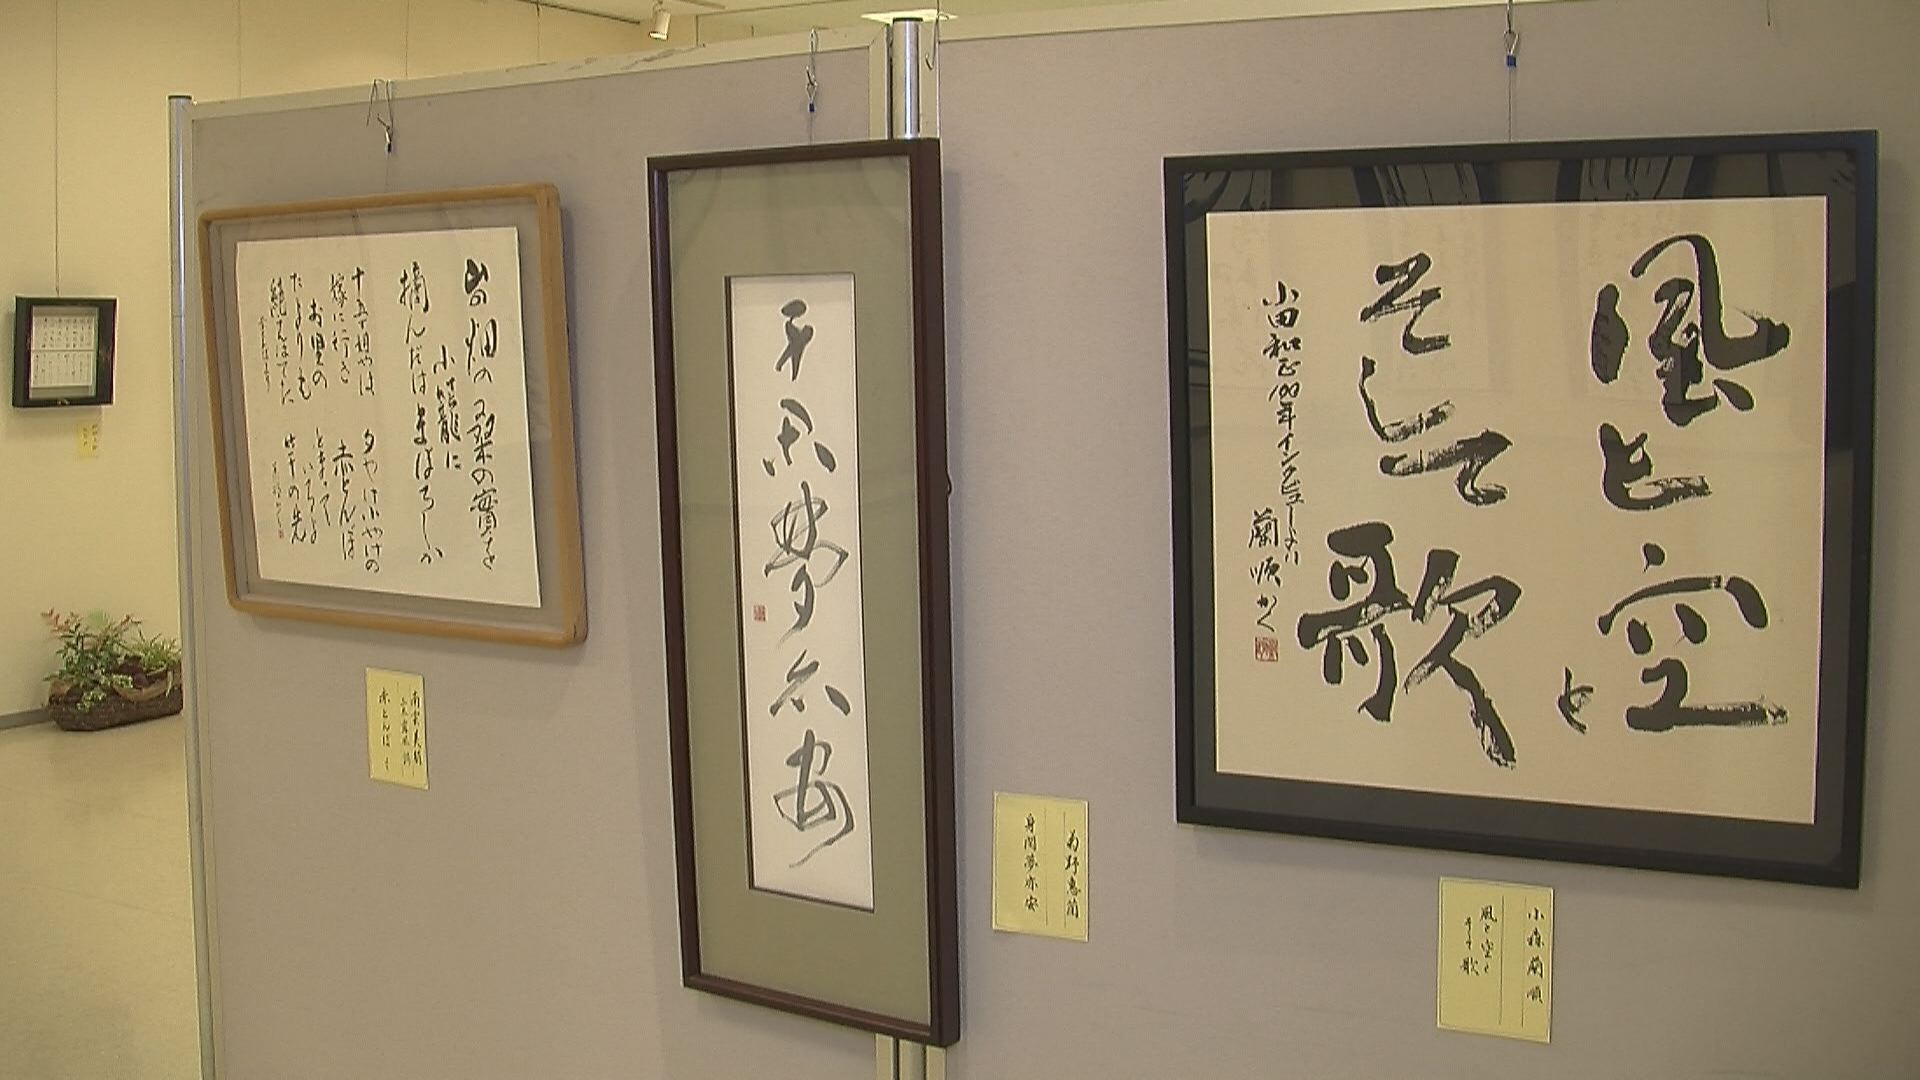 風と空と
そして
歌
小田和正100年インタビューより
蘭順かく
小森蘭順
風と空と
そして歌
身閑夢亦安
菊野恵蘭
身閑夢亦安
山の畑の桑の實を
小籠に
摘んだはまぼろしか
十五で姐やは
嫁に行き
お里の
たよりも
絶えはてた
夕やけ小やけの
赤とんぼ
とまって
いるよ
竿の先
赤とんぼ